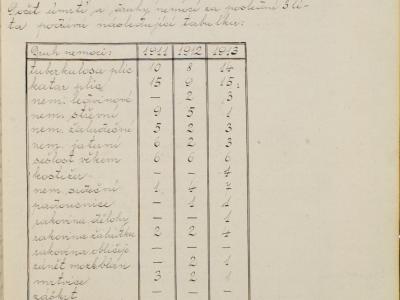 Počet úmrtí a druhy nemocí za poslední 3 lé-
ta počtává následující tabulka:
Druh nemoci: 1911 1912 1913
tuberkulosa plic 10 8 14
katar plic 15 9 15
nem. ledvinové — 2 3
nem. střevní 9 5 1
nem. žaludeční 5 2 3
nem. jaterní 6 2 3
sešlost věkem 6 6 6
— — 4
nem. srdeční 1 4
psotnice — 1 1
rakovina dělohy — — 1
rakovina žaludku 2 2 4
rakovina obličeje — — —
zánět mozkblán — 2 1
mrtvice 3 2 1
záškrt — — —